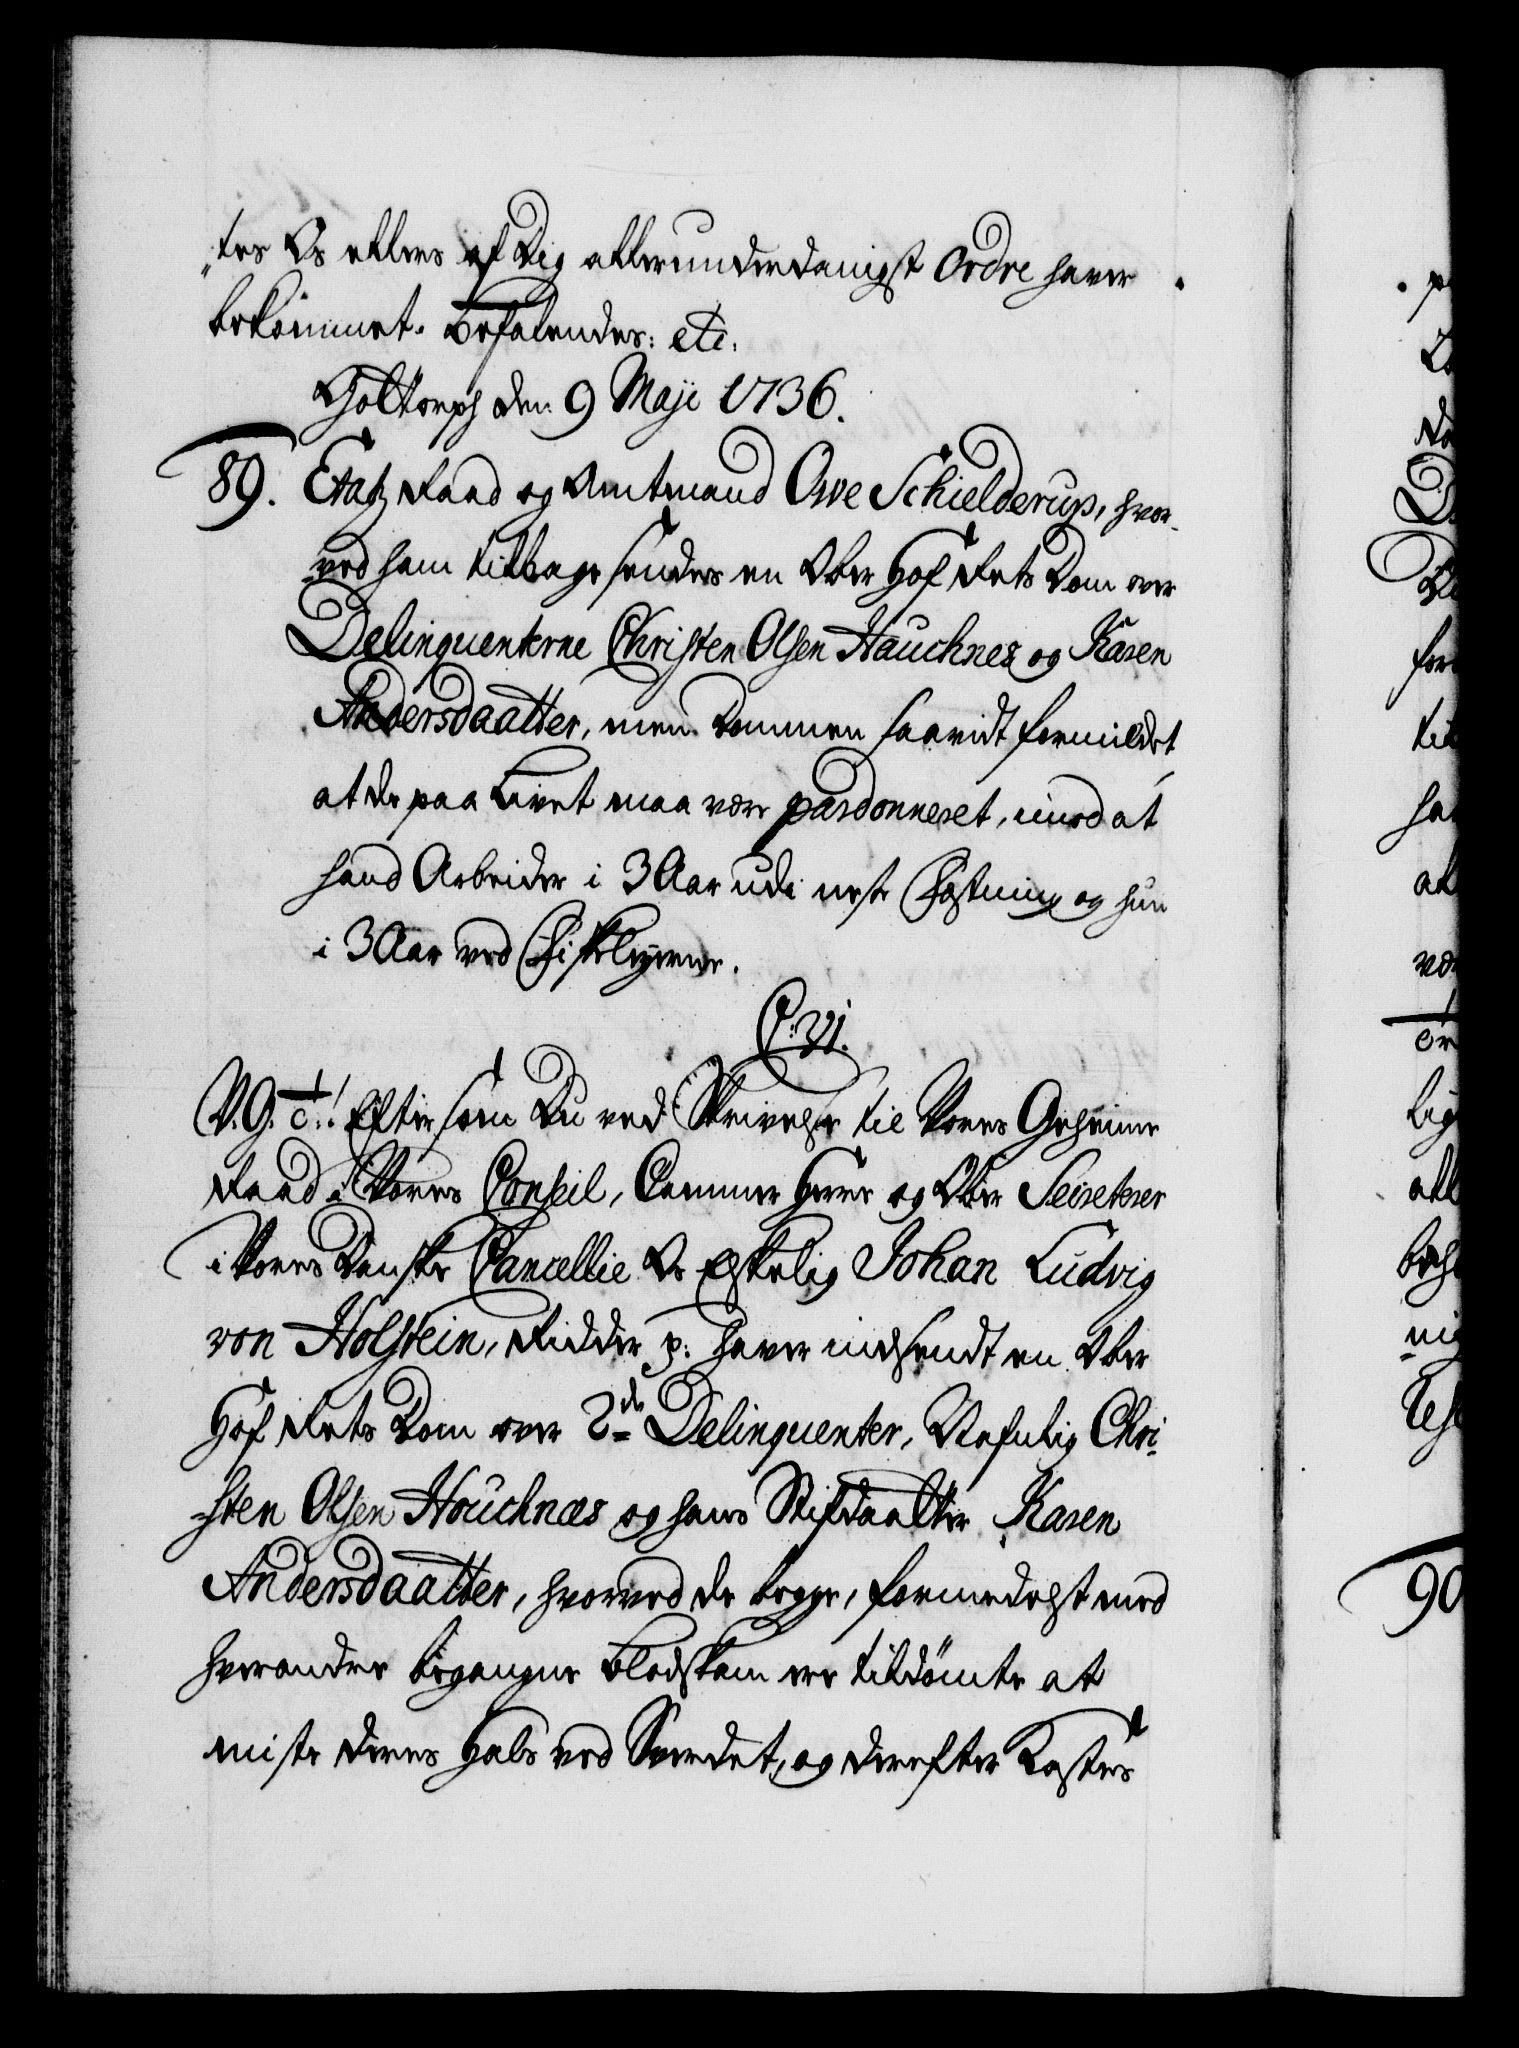 „ter Os ellers af Dig allerunderdanigst Ordre haver
bekommet. Befalendes: etc.
Gottorph den 9 Maji 1736.
89. Etatz Raad og Amtmand Owe Schielderup, hvor-
ved ham tilbage sendes en Ober Hof Rets Dom over
Delinquenterne Christen Olsen Hauchnes og Karen
Andersdaatter, men Dommen saavidt formildet,
at de paa Livet maa være pardonneret, imod at
hand Arbeider i 3 Aar udi neste Fæstning og hun
i 3 Aar ved Fiskelejerne.
C: VI.
V. G. T.! Eftersom Du ved Skrivelse til Vores Geheime
Raad i Vores Conseil, Cammer Herre og Ober Secreterer
i Vores Danske Cancellie Os Elskelig Johan Ludvig
von Holstein, Ridder p: haver indsendt en Ober
Hof Rets Dom over 2de Delinquenter, Nafnlig Chri-
sten Olsen Houchnæs og hans Stifdaatter Karen
Andersdaatter, hvorved de begge, formedelst med
hverandre begangne Blodskam ere tildømte at
miste deres Hals ved Sverdet, og derefter Kastes
90